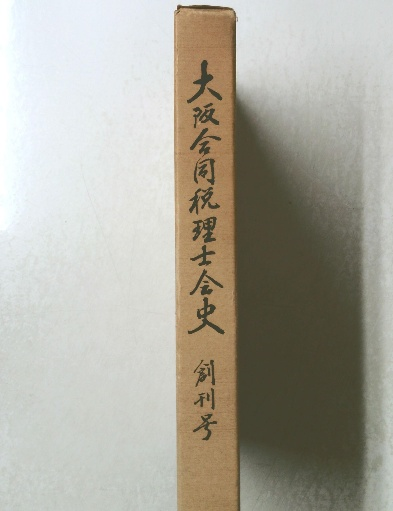 大阪合同税理士会史
創刊号